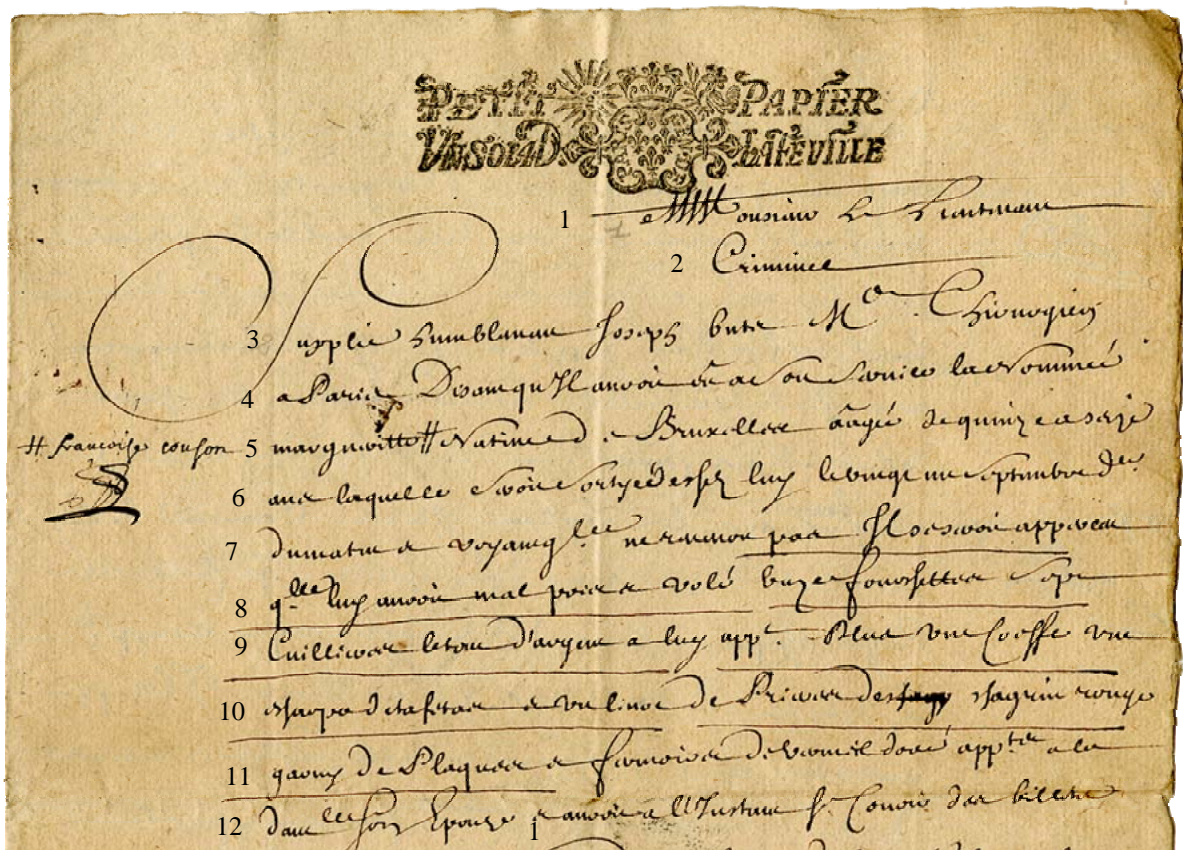 PETIT PAPIER
UN SOL 4 D LA FEUILLE
1 Monsieur Le Lieutenant
2 Criminel
3 Supplie humblement Joseph M.e Chirurgien
4 a Paris Disant qu'Il auroit eu a son service la nommée
# francoise couson
5 margueritte # Natifve de Bruxelles aagée de quinze a seize
6 ans laquelle seroit sortye de chez luy le vingt un septembre der
7 du matin et voyant q.lle ne revenoit pas Il se seroit apperceu
8 q.lle luy auroit mal pris et volé unze fourchettes sept
9 Cuillieres le tout d'argent a luy app.t Plus une Coeffe une
10 escharpe de tafetas et un livre de Prieres de chagrin rouge
11 garny de Plaques et fermoires de vermeil doré app.tes a la
12 dam.lle son Epouze et auroit a l'Instant sr Couru des billets
1